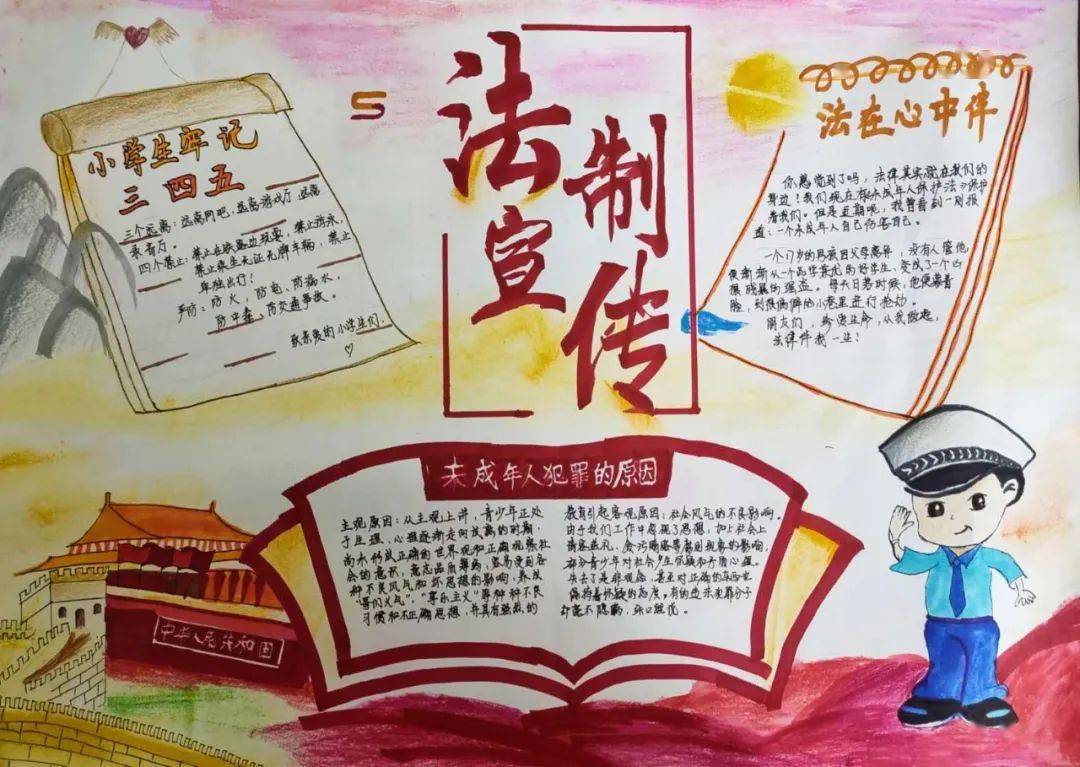 法制
宣传
小学生牢记
三四五
三个远离：远离网吧，远离游戏厅，远离
录音厅。
四个禁止：禁止在铁路边玩耍，禁止游泳，
禁止乘坐无证无牌车辆，禁止
单独出行！
严防：防火，防电，防溺水，
防中毒，防交通事故。
亲爱的小学生们，
法在心中伴
你感觉到了吗，法律其实就在我们的
身边！我们现在有《未成年人保护法》保护
着我们。但是近期呢，我曾看到一则报
道：一个未成年人自己伤害自己。
一个17岁的男孩因父母离异，没有人管他
便渐渐从一个品学兼优的好学生，变成了一个凶
狠残暴的强盗。每天日落时候，他便蒙着
脸，到很偏僻的小巷里进行抢劫。
朋友们，珍惜生命，从我做起，
法律伴我一生！
未成年人犯罪的原因
主观原因：从主观上讲，青少年正处
于生理、心理逐渐走向成熟的时期，
尚未形成正确的世界观和正确观察社
会的意识，意志品质薄弱，容易受到各
种不良风气和坏思想的影响，养成
"哥们义气"，"享乐主义"等种种不良
习惯和不正确思想，并具有强烈的
教育引起客观原因：社会风气的不良影响。
由于我们工作中忽视了思想，加上社会上
请客送礼、贪污贿赂等腐败现象的影响，
部分青少年对社会产生怀疑和矛盾心理。
失去了是非观念，甚至对正确的东西也
保持着怀疑的态度。有的违法犯罪分子
却毫不隐瞒，
中华人民共和国